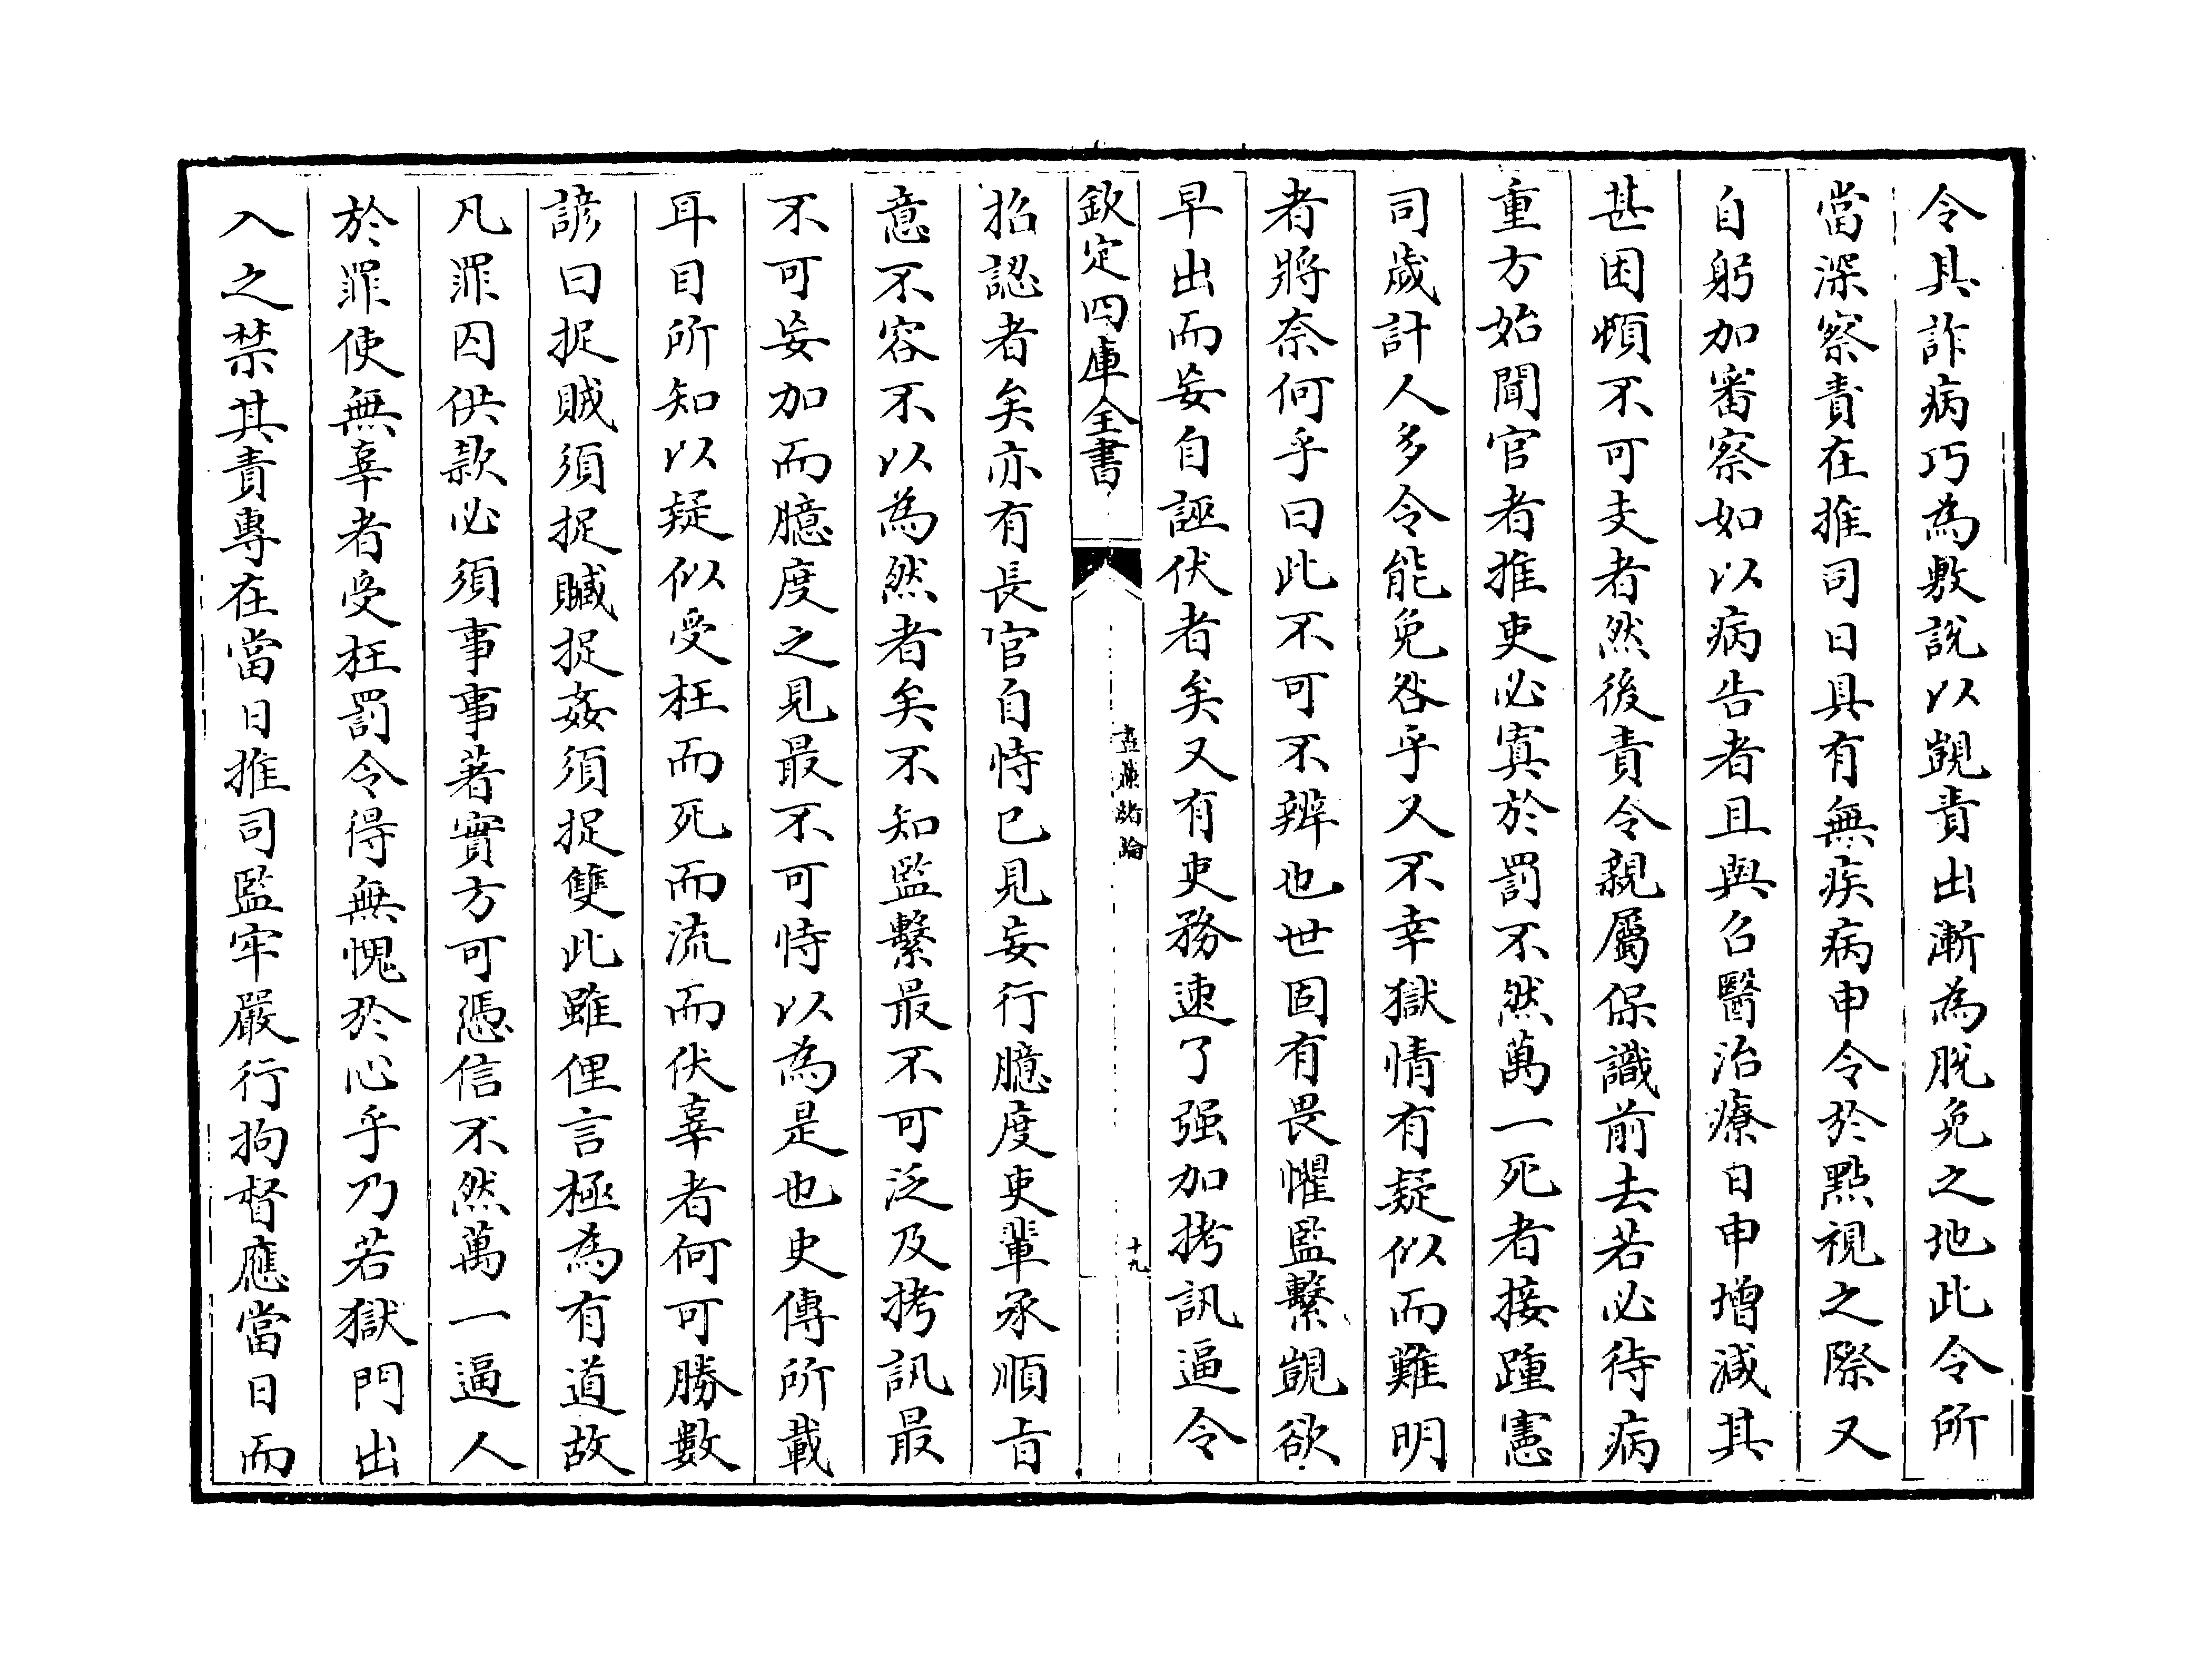 令具詐病巧為敷說以覬責出漸為脫免之地此令所
當深察責在推司日具有無疾病申令於㸃視之際又
自躬加審察如以病告者且與召醫治療日申增減其
甚困頓不可支者然後責令親屬保識前去若必待病
重方始聞官者推吏必寘於罰不然萬一死者接踵憲
司歲計人多令能免咎乎又不幸獄情有疑似而難明
者將奈何乎曰此不可不辨也世固有畏懼監繫覬欲
早出而妄自誣伏者矣又有吏務速了强加拷訊逼令
欽定四庫全書
晝簾緒論
十九
招認者矣亦有長官自恃已見妄行臆度吏輩承順㫖
意不容不以為然者矣不知監繫最不可泛及拷訊最
不可妄加而臆度之見最不可恃以為是也史傳所載
耳目所知以疑似受枉而死而流而伏辜者何可勝數
諺曰捉賊須捉贓捉姦須捉雙此雖俚言極為有道故
凡罪囚供款必須事事著實方可憑信不然萬一逼人
於罪使無辜者受枉罰令得無愧於心乎乃若獄門出
入之禁其責專在當日推司監牢嚴行拘督應當日而